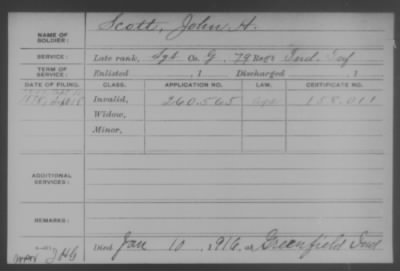 NAME OF SOLDIER: Scott, John H.
SERVICE: Late rank, Sgt Co. G, 79 Reg't Ind. Inf
TERM OF SERVICE: Enlisted , 1 Discharged , 1
DATE OF FILING. CLASS. APPLICATION NO. LAW. CERTIFICATE NO.
1878, Sept 18 Invalid, 260.565 158.011
Widow,
Minor,
ADDITIONAL SERVICES:
REMARKS:
Died Jan 10, 1916, at Greenfield Ind.